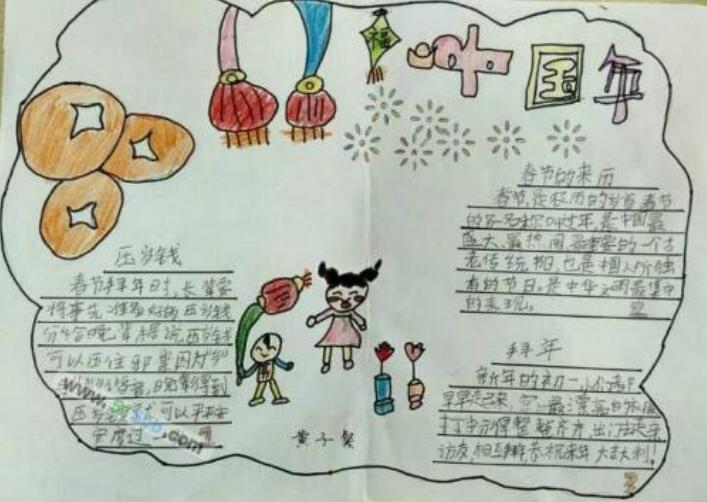 福
中国年
春节的来历
春节,是农历的岁首,春节
的另一名称叫过年,是中国最
盛大、最热闹、最重要的一个古
老传统节日,也是中国人所独
有的节日。是中华文明最集中
的表现。
压岁钱
春节拜年时,长辈要
将事先准备好的压岁钱
分给晚辈,据说压岁钱
可以压住邪祟,因为"岁"
晚辈得到
压岁 可以平平安
安度过一
.com
1
拜年
新年的初一,人们都
早早起来,穿 最漂亮的衣服
打扮得整整齐齐,出门去走亲
访友,相互拜年,恭祝来年大吉大利!
2
2
黄子